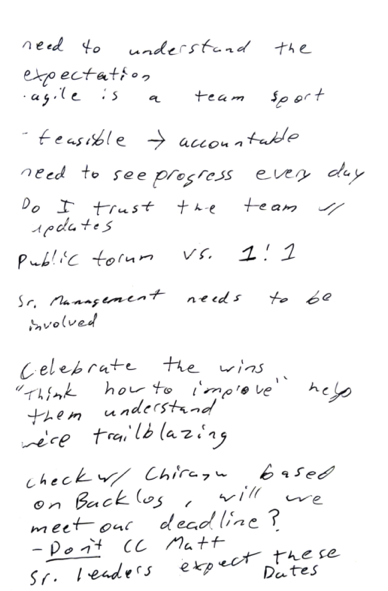 need to understand the
expectation
·agile is a team sport
- feasible → accountable
need to see progress every day
Do I trust the team w/
updates
Public forum vs. 1:1
Sr. Management needs to be
involved
Celebrate the wins
"Think how to improve" help
them understand
we're trailblazing
check w/ Chirayu based
on Backlog, will we
meet our deadline?
- Don't CC Matt
Sr. leaders expect these
Dates